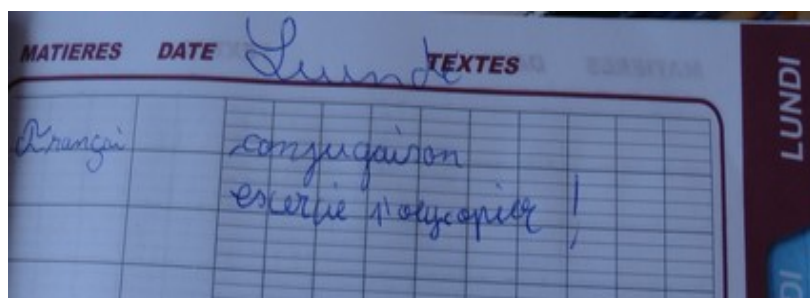 MATIERES DATE TEXTES
Lundi
LUNDI
Françai conjugaison
exercie polycopier !
DI